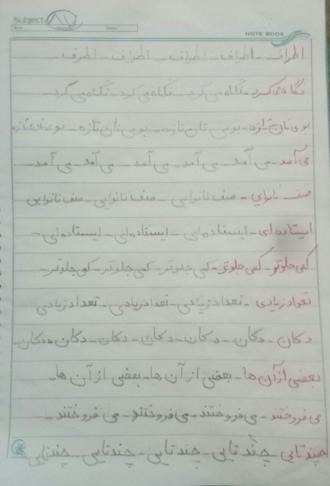 Subject:
NOTE BOOK
اطراف - اطراف - اطراف - اطراف - اطراف
نگاه می کرد - نگاه می کرد - نگاه می کرد - نگاه می کرد
بوی نان تازه - بوی نان تازه - بوی نان تازه - بوی نان تازه
می آمد - می آمد - می آمد - می آمد - می آمد - می آمد
صف نانوایی - صف نانوایی - صف نانوایی - صف نانوایی
ایستاده ای - ایستاده ای - ایستاده ای - ایستاده ای -
کمی جلوتر - کمی جلوتر - کمی جلوتر - کمی جلوتر - کمی جلوتر
تعداد زیادی - تعداد زیادی - تعداد زیادی - تعداد زیادی
دکان - دکان - دکان - دکان - دکان - دکان - دکان
بعضی از آن ها - بعضی از آن ها - بعضی از آن ها -
می فروختند - می فروختند - می فروختند - می فروختند -
چندتایی - چندتایی - چندتایی - چندتایی - چندتایی